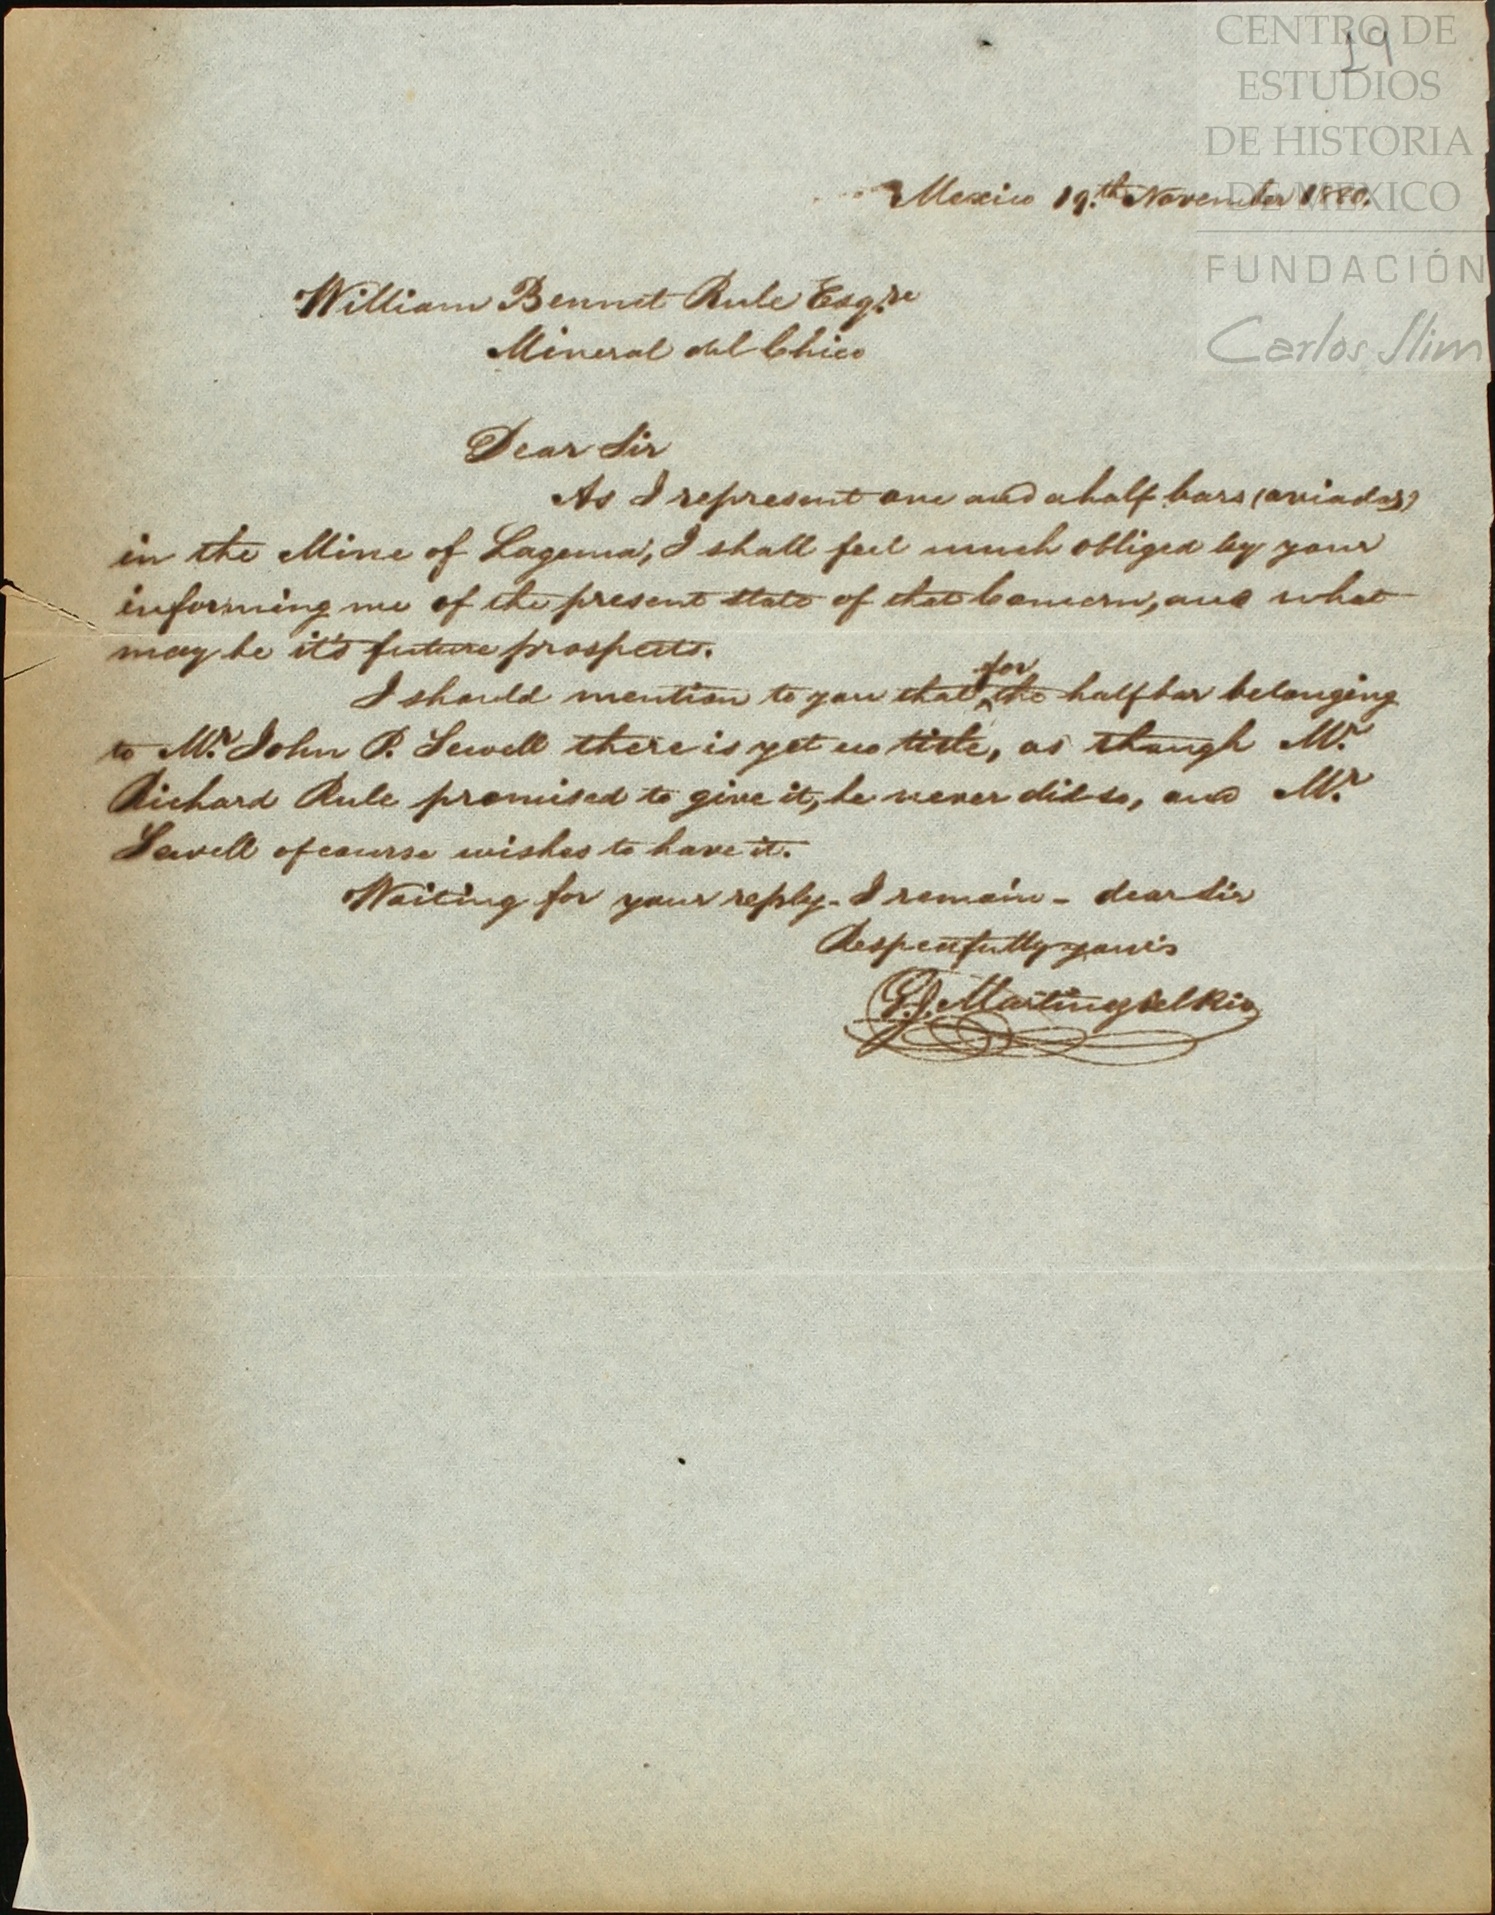 CENTRO DE
ESTUDIOS
DE HISTORIA
DE MEXICO
FUNDACIÓN
Carlos Slim
19
Mexico 19.th November 1880.
William Bennet Rule Esq.re
Mineral del Chico
Dear Sir
As I represent one and a half bars (aviadas)
in the Mine of Laguna, I shall feel much obliged by your
informing me of the present state of that Concern, and what
may be it's future prospects.
I should mention to you that for the half bar belonging
to Mr. John P. Sewell there is yet no title, as though Mr.
Richard Rule promised to give it, he never did so, and Mr.
Sewell of course wishes to have it.
Waiting for your reply - I remain - dear Sir
Respectfully yours
Martinez del Rio